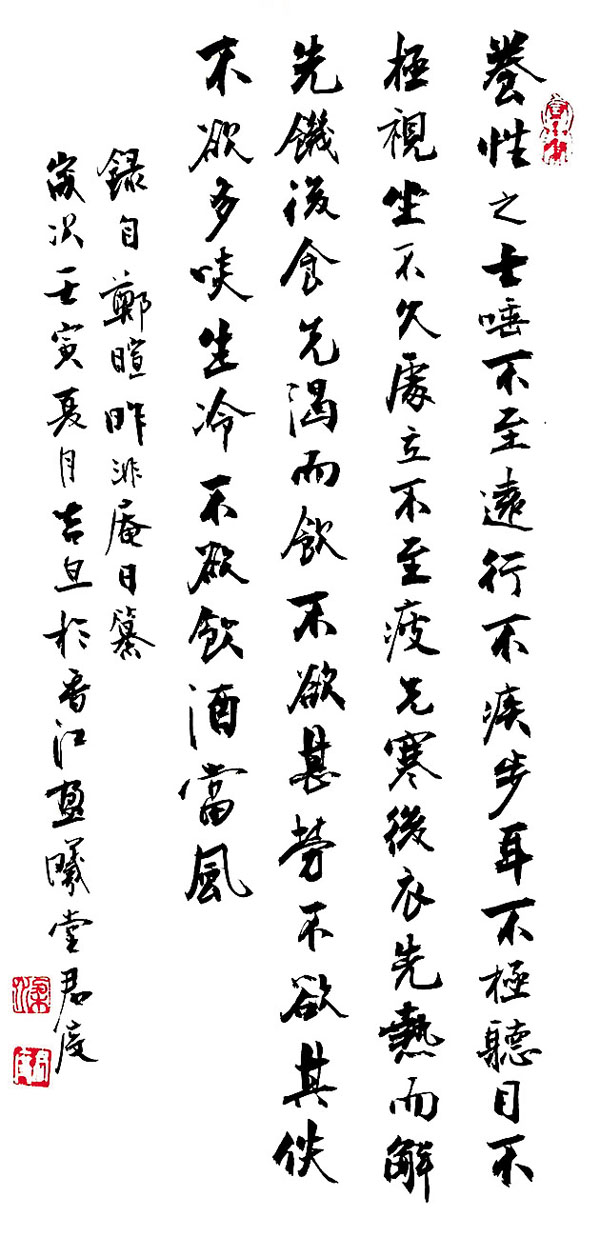 養性之士唾不至遠行不疾步耳不極聽目不
極視坐不久處立不至疲先寒後衣先熱而解
先饑後食先渴而飲不欲甚勞不欲其佚
不欲多啖生冷不欲飲酒當風
錄自鄭暄昨非庵日纂
歲次壬寅夏月吉旦於香江盈曦堂君度